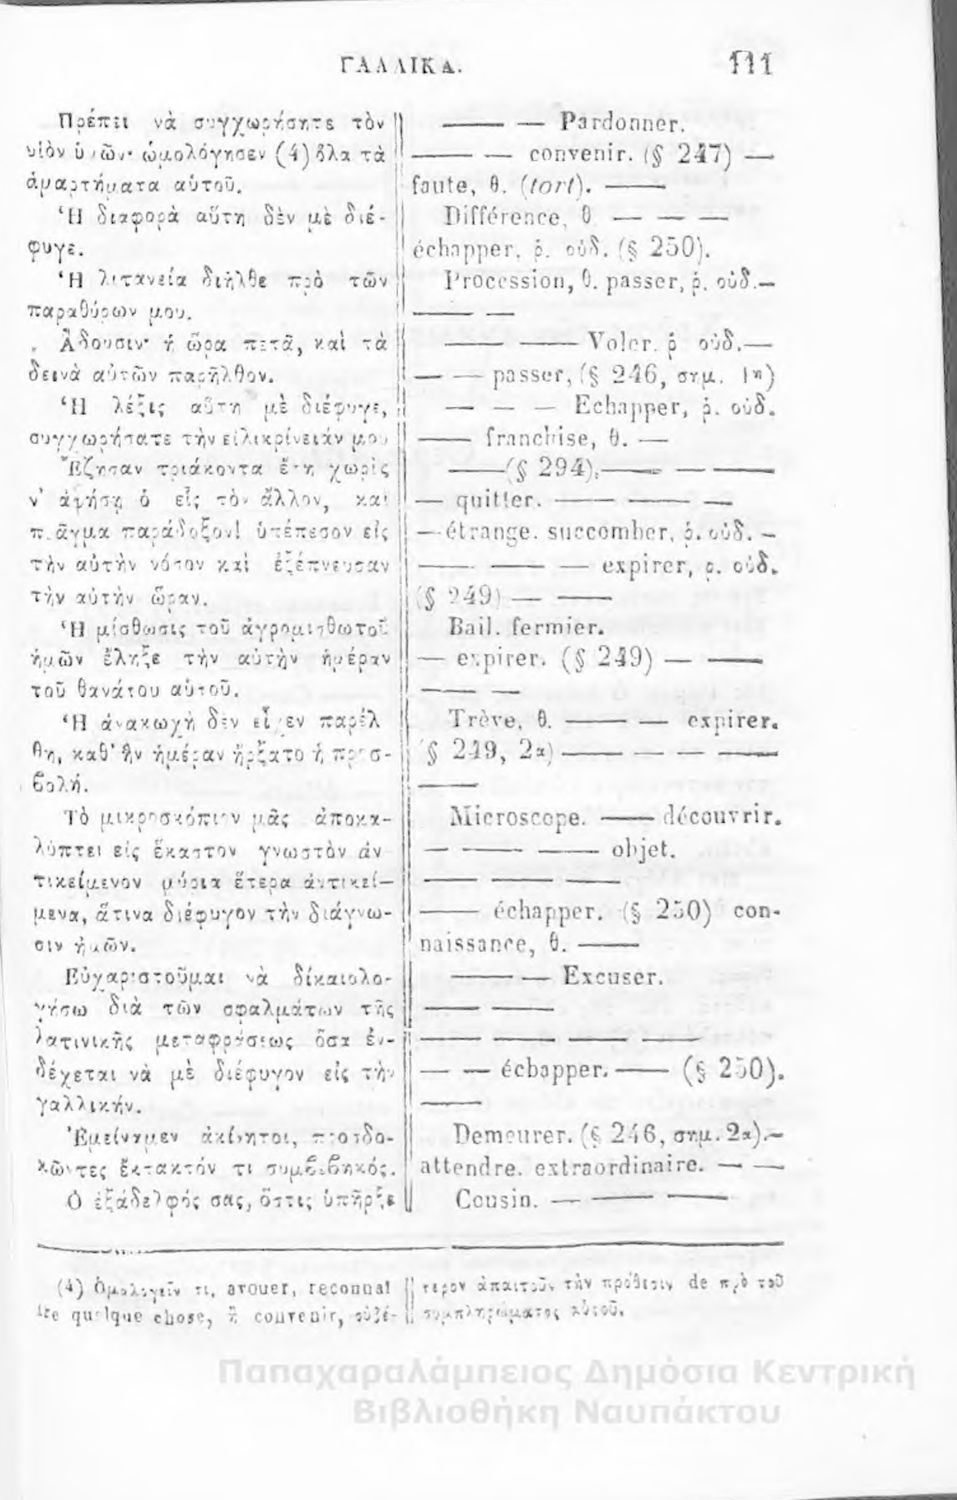 ΓΑΛΛΙΚΑ. 111
Πρέπει νὰ συγχωρήσητε τὸν
υἱὸν ὑμῶν· ὡμολόγησεν (4) ὅλα τὰ
ἁμαρτήματα αὑτοῦ.
Ἡ διαφορὰ αὕτη δὲν μὲ διέ-
φυγε.
Ἡ λιτανεία διῆλθε πρὸ τῶν
παραθύρων μου.
Ἄδουσιν· ἡ ὥρα πετᾷ, καὶ τὰ
δεινὰ αὐτῶν παρῆλθον.
Ἡ λέξις αὕτη μὲ διέφυγε,
συγχωρήσατε τὴν εἰλικρίνειάν μου
Ἔζησαν τριάκοντα ἔτη χωρὶς
ν' ἀφήσῃ ὁ εἷς τὸν ἄλλον, καὶ
πρᾶγμα παράδοξον! ὑπέπεσον εἰς
τὴν αὐτὴν νόσον καὶ ἐξέπνευσαν
τὴν αὐτὴν ὥραν.
Ἡ μίσθωσις τοῦ ἀγρομισθωτοῦ
ἡμῶν ἔληξε τὴν αὐτὴν ἡμέραν
τοῦ θανάτου αὐτοῦ.
Ἡ ἀνακωχὴ δὲν εἶχεν παρέλ
θῃ, καθ' ἣν ἡμέραν ἤρξατο ἡ προσ-
βολή.
Τὸ μικροσκόπιον μᾶς ἀποκα-
λύπτει εἰς ἕκαστον γνωστὸν ἀν
τικείμενον μύρια ἕτερα ἀντικεί—
μενα, ἅτινα διέφυγον τὴν διάγνω-
σιν ἡμῶν.
Εὐχαριστοῦμαι νὰ δικαιολο-
γήσω διὰ τῶν σφαλμάτων τῆς
λατινικῆς μεταφράσεως ὅσα ἐν-
δέχεται νὰ μὲ διέφυγον εἰς τὴν
γαλλικήν.
Ἐμείναμεν ἀκίνητοι, προσδο-
κῶντες ἔκτακτόν τι συμβεβηκός.
Ὁ ἐξάδελφός σας, ὅστις ὑπῆρξε
—— — Pardonner.
—— — convenir. (§ 247) —
faute, θ. (tort). ——
Différence, θ — — —
échapper. ῥ. οὐδ. (§ 250).
Procession, θ. passer, ῥ. οὐδ.—
—— —
—— —— Voler. ῥ οὐδ.—
— — passer, (§ 246, σημ. 1η)
— — — Echapper, ῥ. οὐδ.
—— franchise, θ. —
——(§ 294).—— — ——
— quitter. —— —— —
— étrange. succomber, ῥ. οὐδ. —
—— —— — expirer, ρ. οὐδ.
(§ 249) — ——
Bail. fermier.
— expirer. (§ 249) — ——
—— —
Trève, θ. —— — expirer.
§ 249, 2α) —— — — ——
— —
Microscope. —— découvrir.
— —— —— objet.
—— —— ——
—— échapper. (§ 250) con-
naissance, θ. ——
—— — Excuser.
—— ——
—— —— —— ——
— — échapper. —— (§ 250).
——
Demeurer. (§ 246, σημ. 2α).—
attendre. extraordinaire. — —
Cousin. — —— ——
(4) Ὁμολογεῖν τι, avouer, reconnaî
tre quelque chose, ἢ convenir, οὐδέ-
τερον ἀπαιτοῦν τὴν πρόθεσιν de πρὸ τοῦ
συμπληρώματος αὐτοῦ.
Παπαχαραλάμπειος Δημόσια Κεντρική
Βιβλιοθήκη Ναυπάκτου